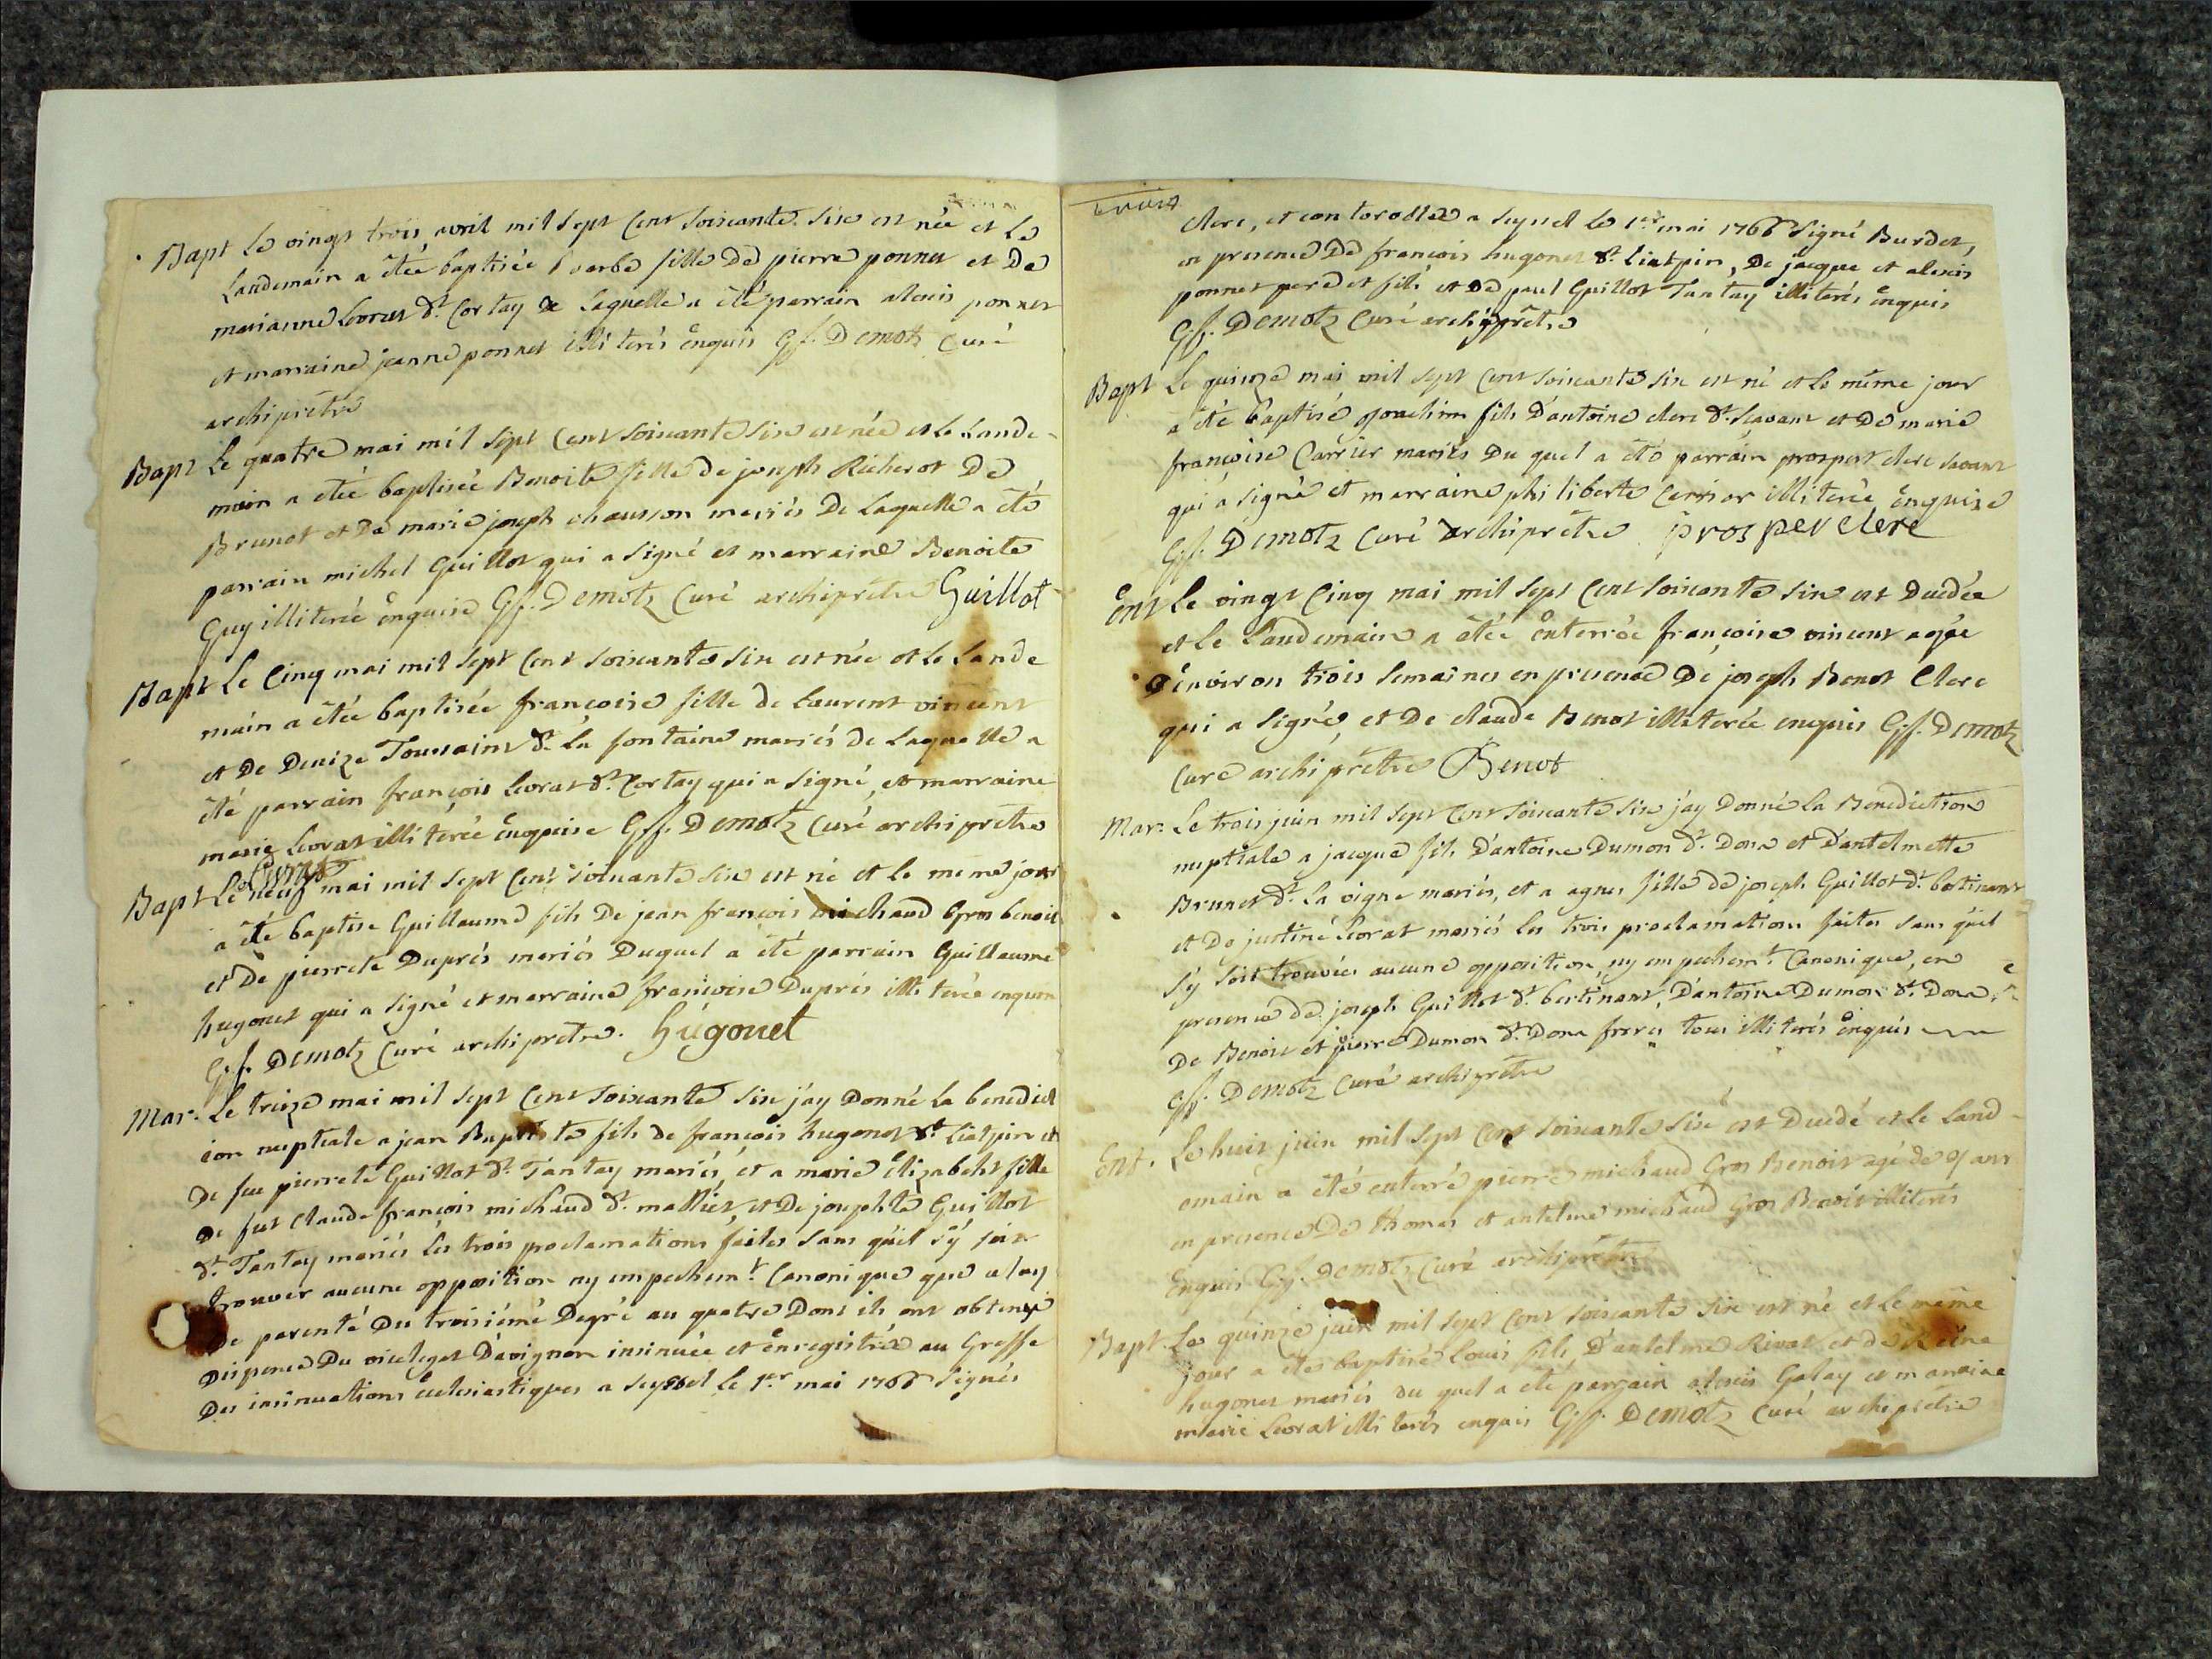 Bapt Le vingt trois avril mil sept cent soixante six est née et Le
Landemain a étée baptisée barbe fille De pierre ponnet et De
marianne Levrat dt. Cortay de Laquelle a été parrain alexis ponnet
et marraine jeanne ponnet illiterés enquis Gf. Demotz Curé
archiprêtre
Bapt Le quatre mai mil sept Cent soixante six est née et Le Lande-
main a étée baptisée Benoite fille de joseph Richerot De
Brunot et De marie joseph chausson mariés De Laquelle a été
parrain michel Guillot qui a signé et marraine Benoite
Guy illiterée enquise Gf. Demotz Curé archiprêtre Guillot
Bapt Le Cinq mai mil sept Cent soixante six est née et Le Lande
main a étée baptisée françoise fille de Laurent vincent
et De Denize Toussaint dt. La fontaine mariés de Laquelle a
été parrain françois Levrat dt. Cortay qui a signé, et marraine
marie Levrat illiterée enquise Gf. Demotz Curé archiprêtre
Levrat
Bapt Le neuf mai mil sept Cent soixante six est né et le meme jour
a été baptise Guillaume fils De jean françois michaud Gros benoit
et De pierrete Duprés mariés Duquel a été parrain Guillaume
hugonet qui a signé et marraine françoise Duprés illiterée enquise
Gf. Demotz Curé archipretre. hugonet
Mar. Le treize mai mil sept Cent soixante six j'ay Donné La benedict
ion nuptiale a jean Baptiste fils de françois hugonet dt. Liatpin et
De feu pierrete Guillot dt. Tantay mariés, et a marie Elizabeht fille
De fut Claude françois michaud dt. mattiet, et De josephte Guillot
dt. Tantay mariés Les trois proclamations faites sans qu'il s'y soit
trouver aucune opposition ny empechemt. Canonique que celuy
De parenté Du troisiéme Degré au quatre Dont ils ont obtenue
Dispence Du vicelegat D'avignon insinuée et enregistrée au Greffe
Des insinuations Ecclesiastiques a seyssel le 1er. mai 1766 signés
trois
clerc, et controllée a seyssel le 1er. mai 1766 signé Burdet,
en presence De françois hugonet dt. Liatpin, De jacque et alexis
ponnet pere et fils et De paul Guillot Tantay illiterés enquis
Gf. Demotz Curé archiprêtre
Bapt Le quinze mai mil sept Cent soixante six est né et Le même jour
a été baptisé joachim fils D'antoine clerc dt. scavant et De marie
françoise Carrier mariés Du quel a été parrain prosper clerc savant
qui a signé et marraine philiberte Carrier illiterée enquise
Gf. Demotz Curé archiprêtre prosper clerc
Ent Le vingt Cinq mai mil sept Cent soixante six est Dcedée
et Le Landemain a étée enterrée françoise vincent agée
D'environ trois semaines en presence De joseph Benot Clerc
qui a signé, et De claude Benot illiterée enquis Gf. Demotz
Curé archiprêtre Benot
Mar. Le trois juin mil sept Cent soixante six j'ay Donné La Benediction
nuptiale a jacque fils D'antoine Dumon dt. Dona et D'antelmette
Brunet dt. La vigne mariés, et a agnes fille de joseph Guillot dt. bertinant
et De justine Levrat mariés les trois proclamations faites sans qu'il
s'y soit trouvées aucune opposition ny empechemt. Canonique, en
presence de joseph Guillot dt. bertinant, D'antoine Dumon dt. Dona, et
De Benoit et pierre Dumon dt. Dona freres tous illiterés enquis
Gf. Demotz Curé archiprêtre
Ent. Le huit juin mil sept Cent soixante six est Decedé et le Land-
emain a été enterré pierre michaud Gros Benoit agé de 9 ans
en presence De thomas et antelme michaud Gros Benoit illiterés
Enquis Gf. Demotz Curé archiprêtre
Bapt. Le quinze juin mil sept Cent soixante six est né et Le même
jour a été baptisé Louis fils D'antelme Rivat et de Reine
hugonet mariés du quel a été parrain alexis Galay et marraine
marie Levrat illiterés enquis Gf. Demotz Curé archiprêtre